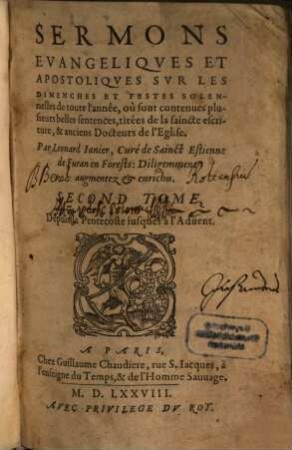 SERMONS
EVANGELIQVES ET
APOSTOLIQVES SVR LES
DIMENCHES ET FESTES SOLEN-
nelles de toute l'année, où sont contenues plu-
sieurs belles sentences, tirées de la saincte escri-
ture, & anciens Docteurs de l'Eglise.
Par Leonard Ianier, Curé de Sainct Estienne
de Furan en Forests: Diligemment
augmentez & enrichis.
SECOND TOME,
Depuis la Pentecoste iusques à l'Aduent.
A PARIS,
Chez Guillaume Chaudiere, rue S. Iacques, à
l'enseigne du Temps, & de l'Homme Sauuage.
M. D. LXXVIII.
AVEC PRIVILEGE DV ROY.